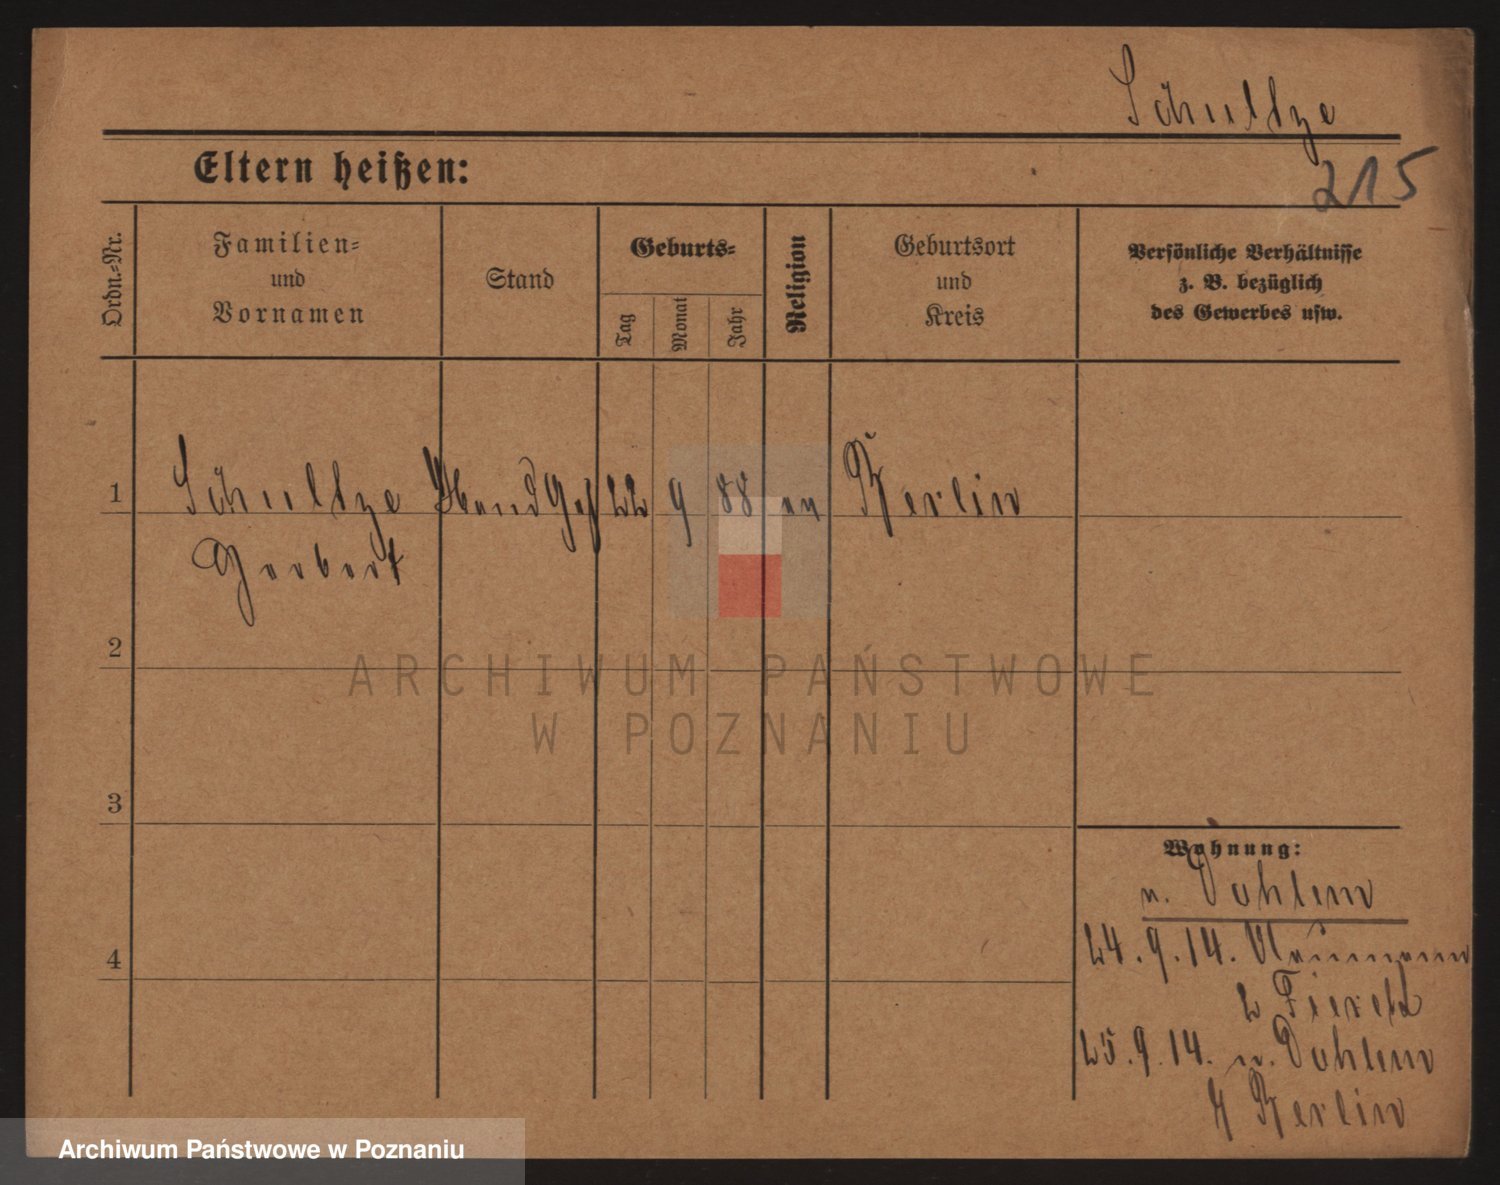 Schultze
Eltern heißen:
215
Ordn.-Nr.
Familien-
und
Vornamen
Stand
Geburts-
Tag
Monat
Jahr
Religion
Geburtsort
und
Kreis
Persönliche Verhältnisse
z. B. bezüglich
des Gewerbes usw.
1
Schultze
Handl Geh
22
9
88
ev
Berlin
Herbert
2
ARCHIWUM PAŃSTWOWE
W POZNANIU
3
Wohnung:
n. Dahlem
4
24.9.14. Naumann
2
25.9.14. n. Dahlem
Berlin
Archiwum Państwowe w Poznaniu